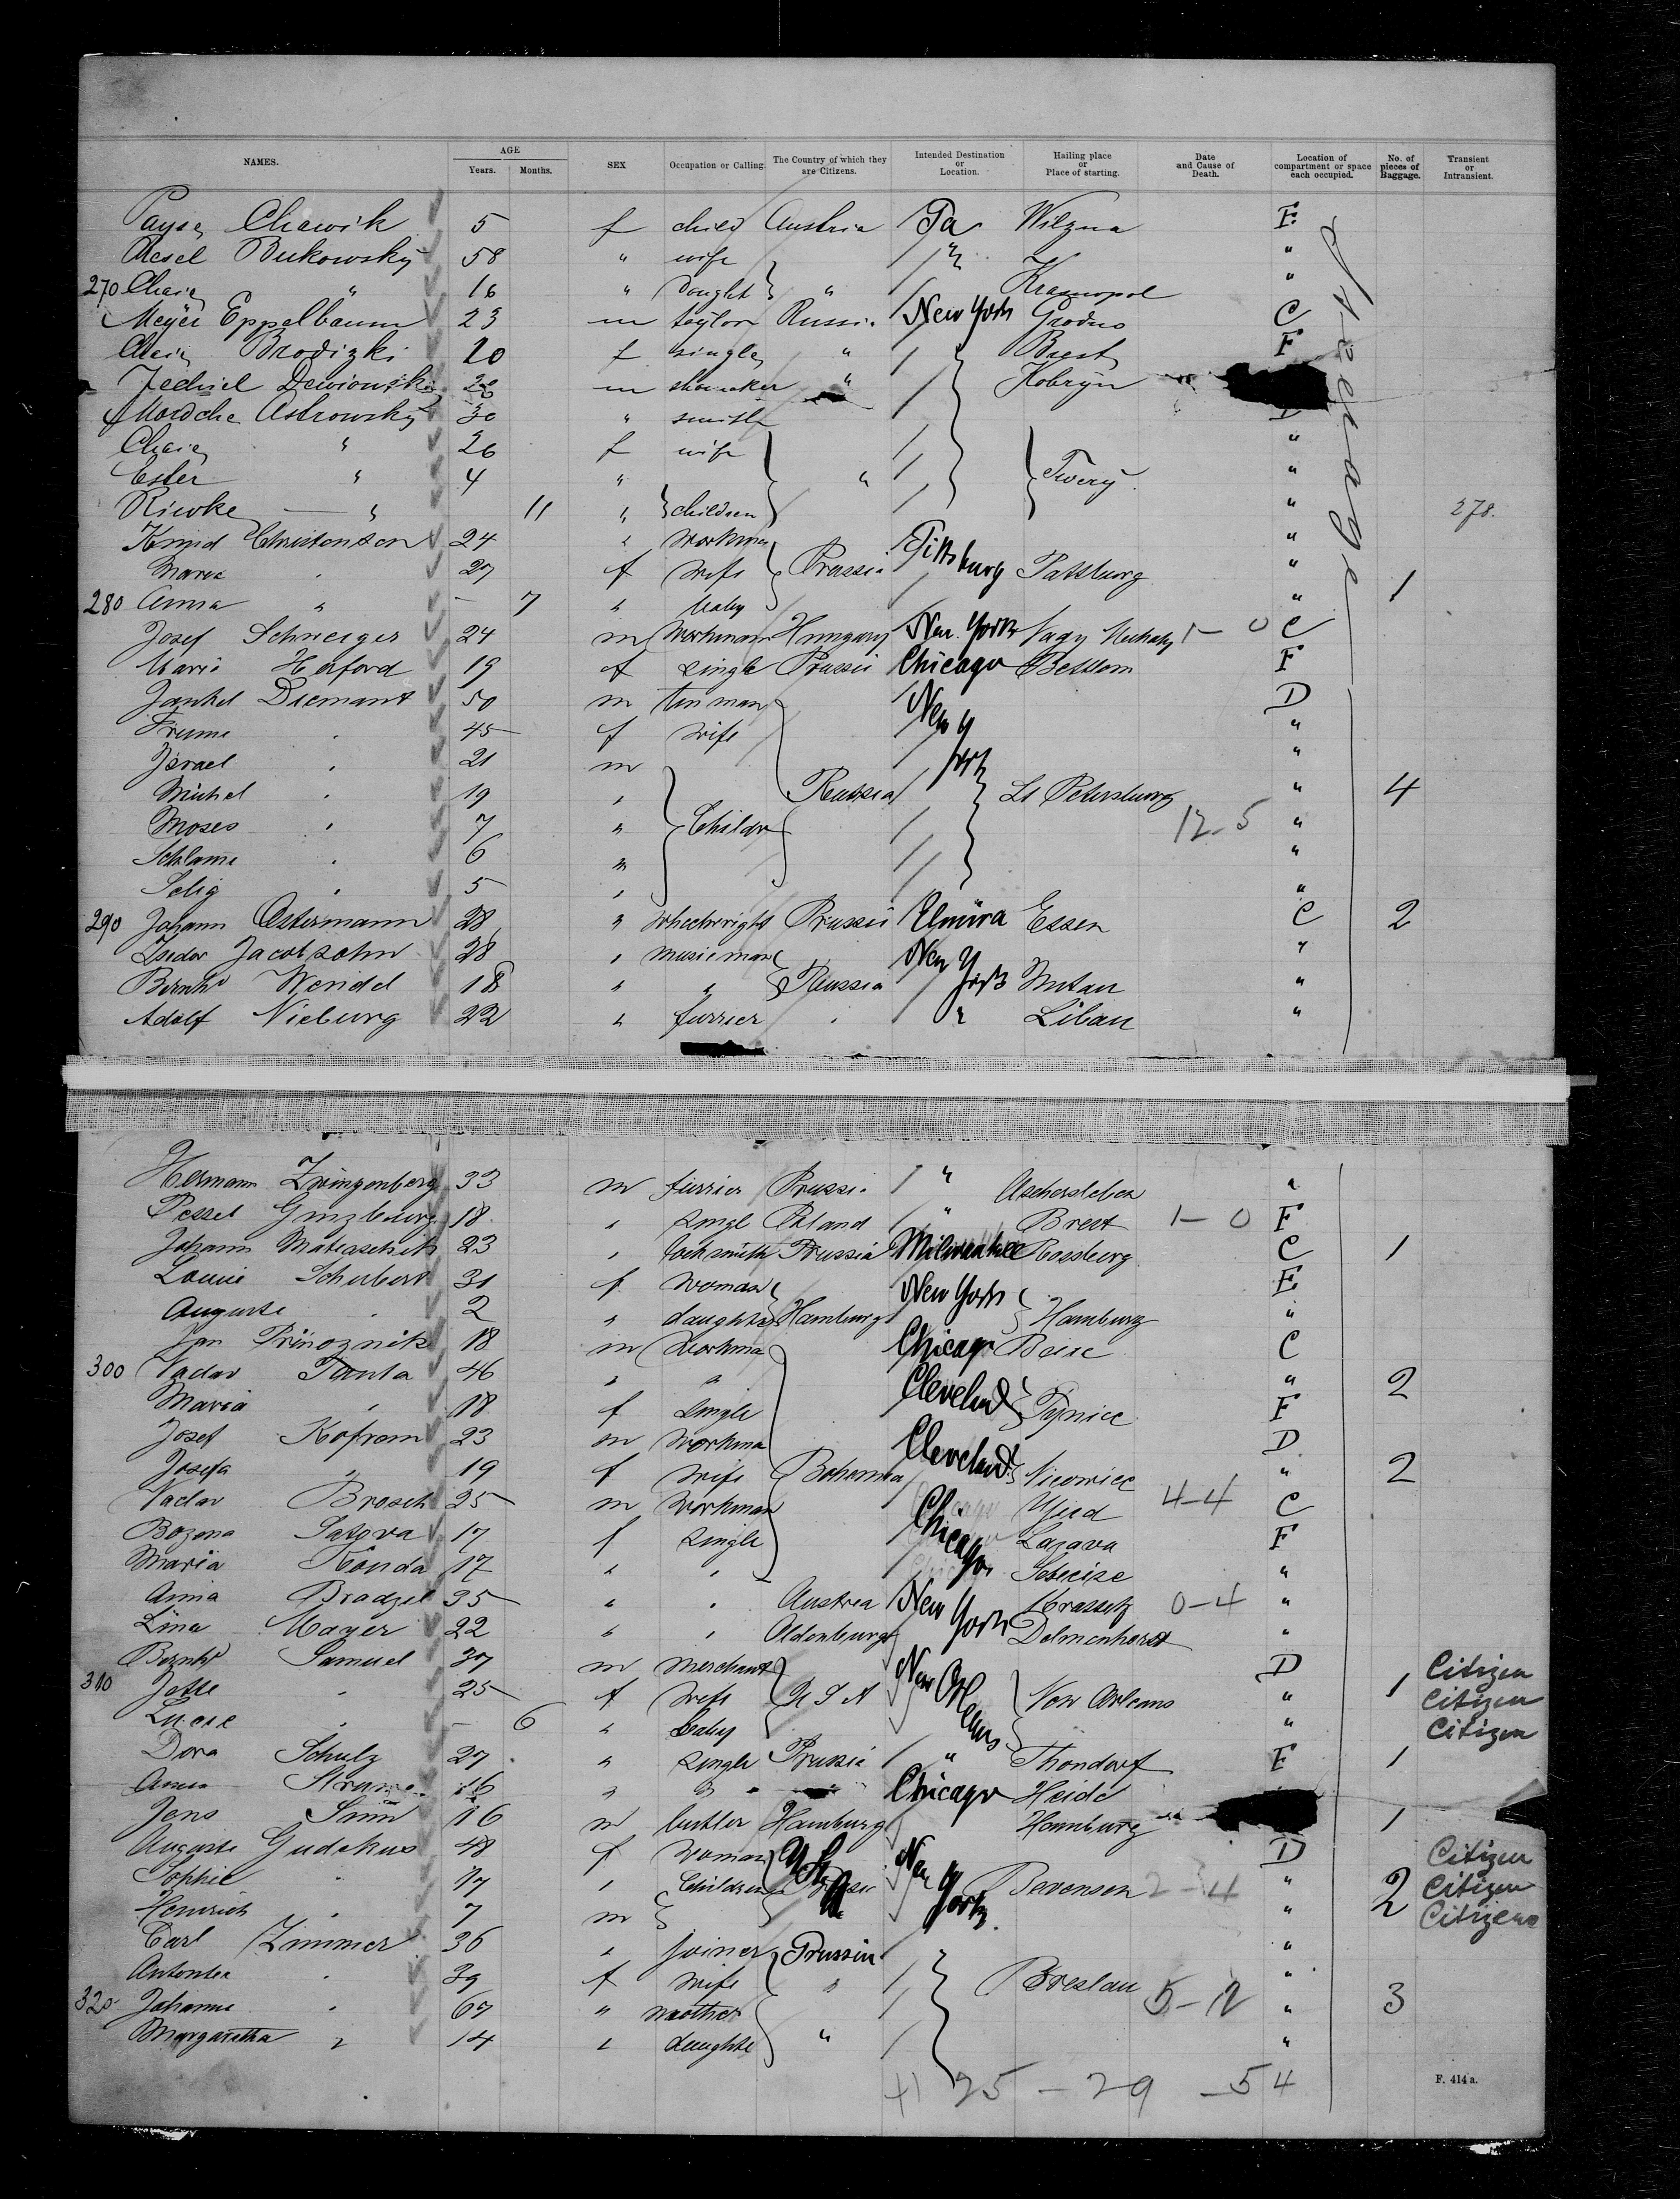 NAMES. AGE Years. Months. SEX Occupation or Calling. The Country of which they are Citizens. Intended Destination or Location. Hailing place or Place of starting. Date and Cause of Death. Location of compartment or space each occupied. No. of pieces of Baggage. Transient or Intransient.
Chawik 5 f child Austria Pa Wilzna F.
Bukowsky 58 " wife " "
270 Chaie " 16 " Dought " Kramopol "
Meyer Eppelbaum 23 m taylor Russia New York Grodno C
Chaie Brodizki 20 f single " Brest F
Jechiel 26 m shomaker " Kobryn
Mordche Astrowsky 30 " smith D
Chaie " 26 f wife "
Ester " 4 " " Twery "
Riewke — " 11 " children " 278.
Knud Christensen 24 " workman Pittsburg "
Maria " 27 f wife Prussia Pattburg " 1
280 Anna " — 7 " baby "
Josef Schweiger 24 m Workman Hungary New York Nagy 1-0 C
Marie Herford 19 f single Prussia Chicago F
Jankel Diemant 50 m tin man New York D
Frume " 45 f wife "
Israel " 21 m "
Michel " 19 " Russia St Petersburg " 4
Moses " 7 " Childr 12-5 "
Schlame " 6 " "
Selig " 5 " "
290 Johann Ostermann 28 " wheelwright Prussia Elmira Essen C 2
Isidor Jacobsohn 28 " musicman New York "
Bernhd Wendel 18 " " Russia Mitau "
Adolf Nieburg 22 " furrier " " Libau "
Hermann Zwingenberg 33 m furrier Prussia " Aschersleben "
Pessel Ginzburg 18 " singl Poland " Brest 1-0 F
Johann 23 " locksmith Prussia Milwaukee Rossberg C 1
Louise Schubert 31 f woman New York E
Auguste " 2 " daughter Hamburg Hamburg "
Jan 18 m Workman Chicago C
300 Vaclav Panta 46 " " Cleveland " 2
Maria " 18 f single Tynice F
Josef Kofron 23 m workman Cleveland D
Josefa " 19 f wife Bohemia " 2
Vaclav Brosch 25 m workman Chicago Ujezd 4-4 C
Bozena 17 f single Chicago Lazava F
Maria 17 " " "
Anna 35 " " Austria New York 0-4 "
Lina Mayer 22 " " Oldenburg Delmenhorst "
Bernhd Samuel 37 m merchant New Orleans D Citizen
310 Jette " 25 f wife U S A New Orleans " 1 Citizen
Lucie " — 6 " baby " Citizen
Dora Schulz 27 " single Prussia " Thondorf F 1
Anna 16 " " " Chicago Heide
Jens 16 m butler Hamburg Hamburg 1
Auguste Gudekus 48 f woman U S A New York D Citizen
Sophie " 17 " Children Bevensen 2-4 " 2 Citizen
Heinrich " 7 m " Citizen
Carl Zimmer 36 " joiner Prussia "
Antonia " 39 f wife " Breslau "
320 Johanne " 67 " mother 5-2 " 3
Margaretha " 14 " daughter " "
41 25 - 29 - 54
F. 414 a.
Steerage